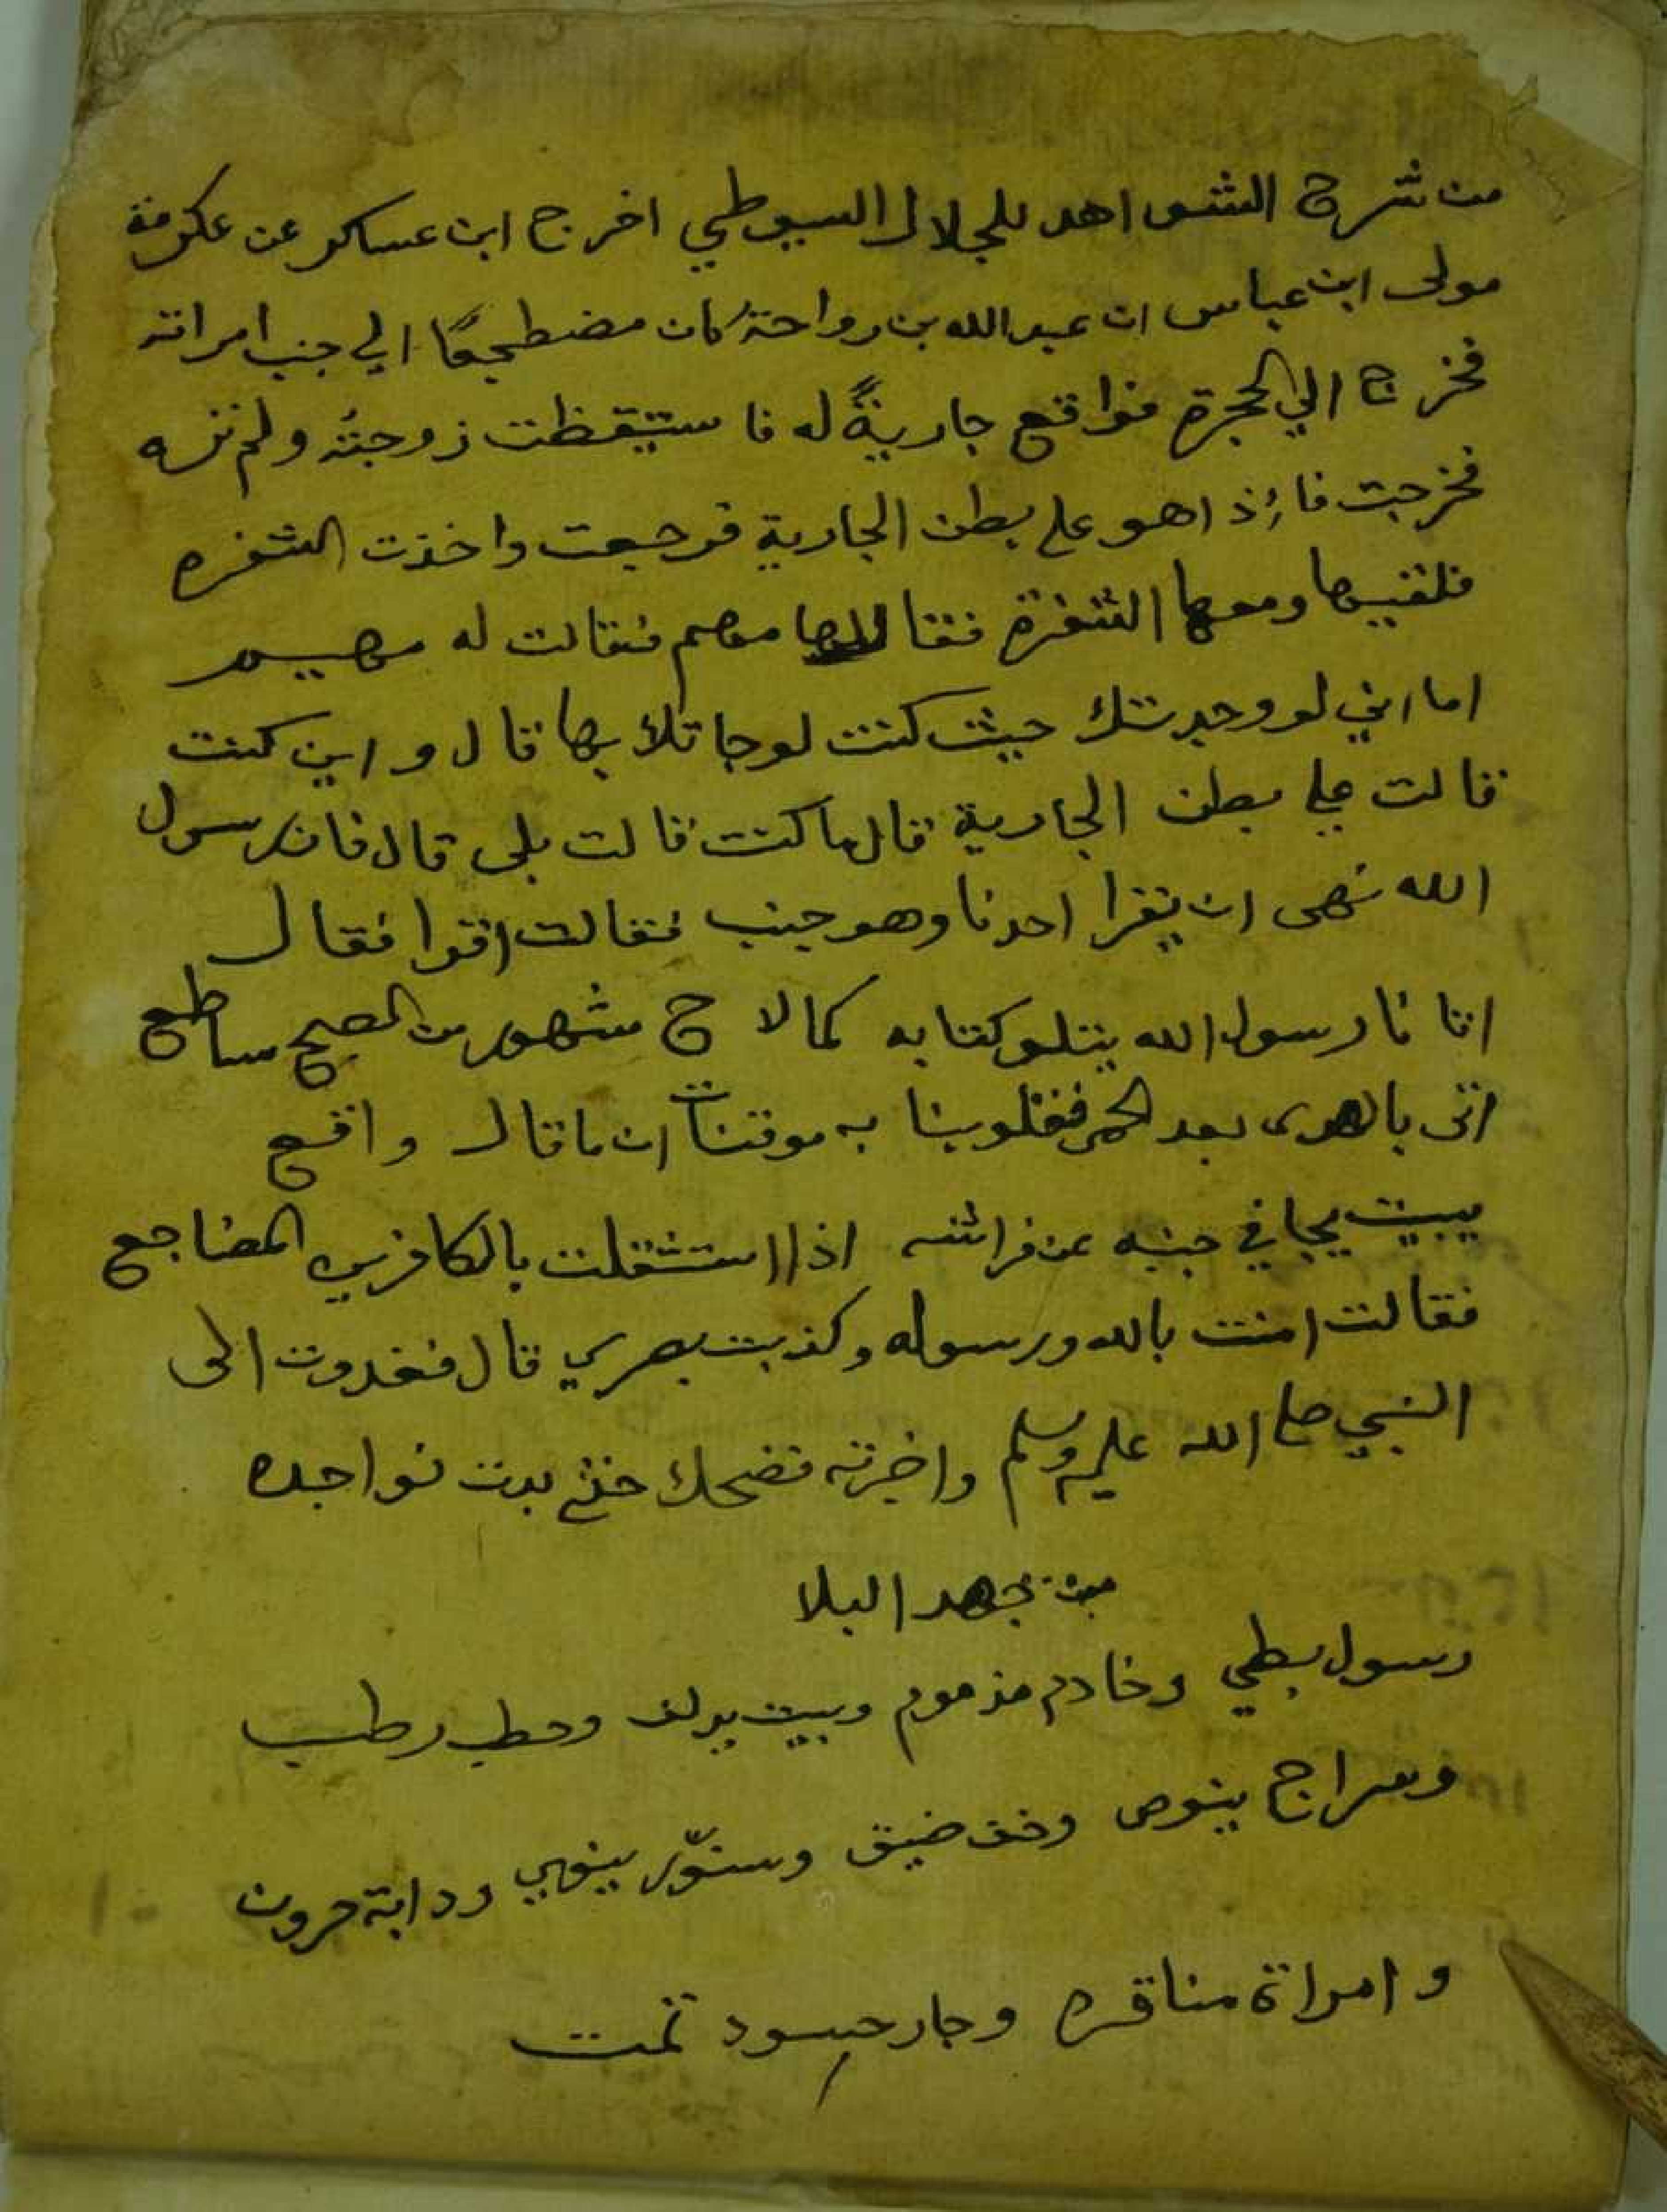 من شرح الشواهد للجلال السيوطي اخرج ابن عساكر عن عكرمة
مولى ابن عباس ان عبد الله بن رواحة كان مضطجعًا الي جنب امراته
فخرج الي الحجرة فواقع جاريةً له فاستيقظت زوجتُه ولم تره
فخرجت فاِذا هو علي بطن الجارية فرجعت واخذت الشفره
فلقيها ومعها الشفرة فقال لها مهيم فقالت له مهيم
اما اني لو وجدتك حيث كنت لوجاتك بها قال واين كنت
قالت علي بطن الجارية قال ما كنت قالت بلى قال فان رسول
الله نهى ان يقرا احدنا وهو جنب فقالت اقرا فقال
اتانا رسول الله يتلو كتابه كما لاح مشهور من الصبح ساطع
اتى بالهدى بعد العمى فقلوبنا به موقنات ان ما قال واقع
يبيت يجافي جنبه عن فراشه اذا استثقلت بالكافرين المضاجع
فقالت امنت بالله ورسوله وكذبت بصري قال فغدوت الى
النبي صلي الله عليه وسلم واخبرته فضحك حتي بدت نواجده
من جهد البلا
رسول بطي وخادم مذموم وبيت يدلف وحطب رطب
وسراج ينوص وخف ضيق وسنّور ينوي ودابة حرون
وامراة مناقره وجار حسود تمت